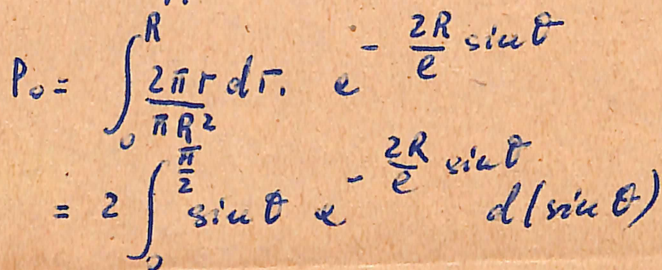 P₀ = ∫₀ᴿ (2πr dr)/(πR²) · e^{- (2R/e) sin θ}
= 2 ∫₀^{π/2} sin θ e^{- (2R/e) sin θ} d(sin θ)